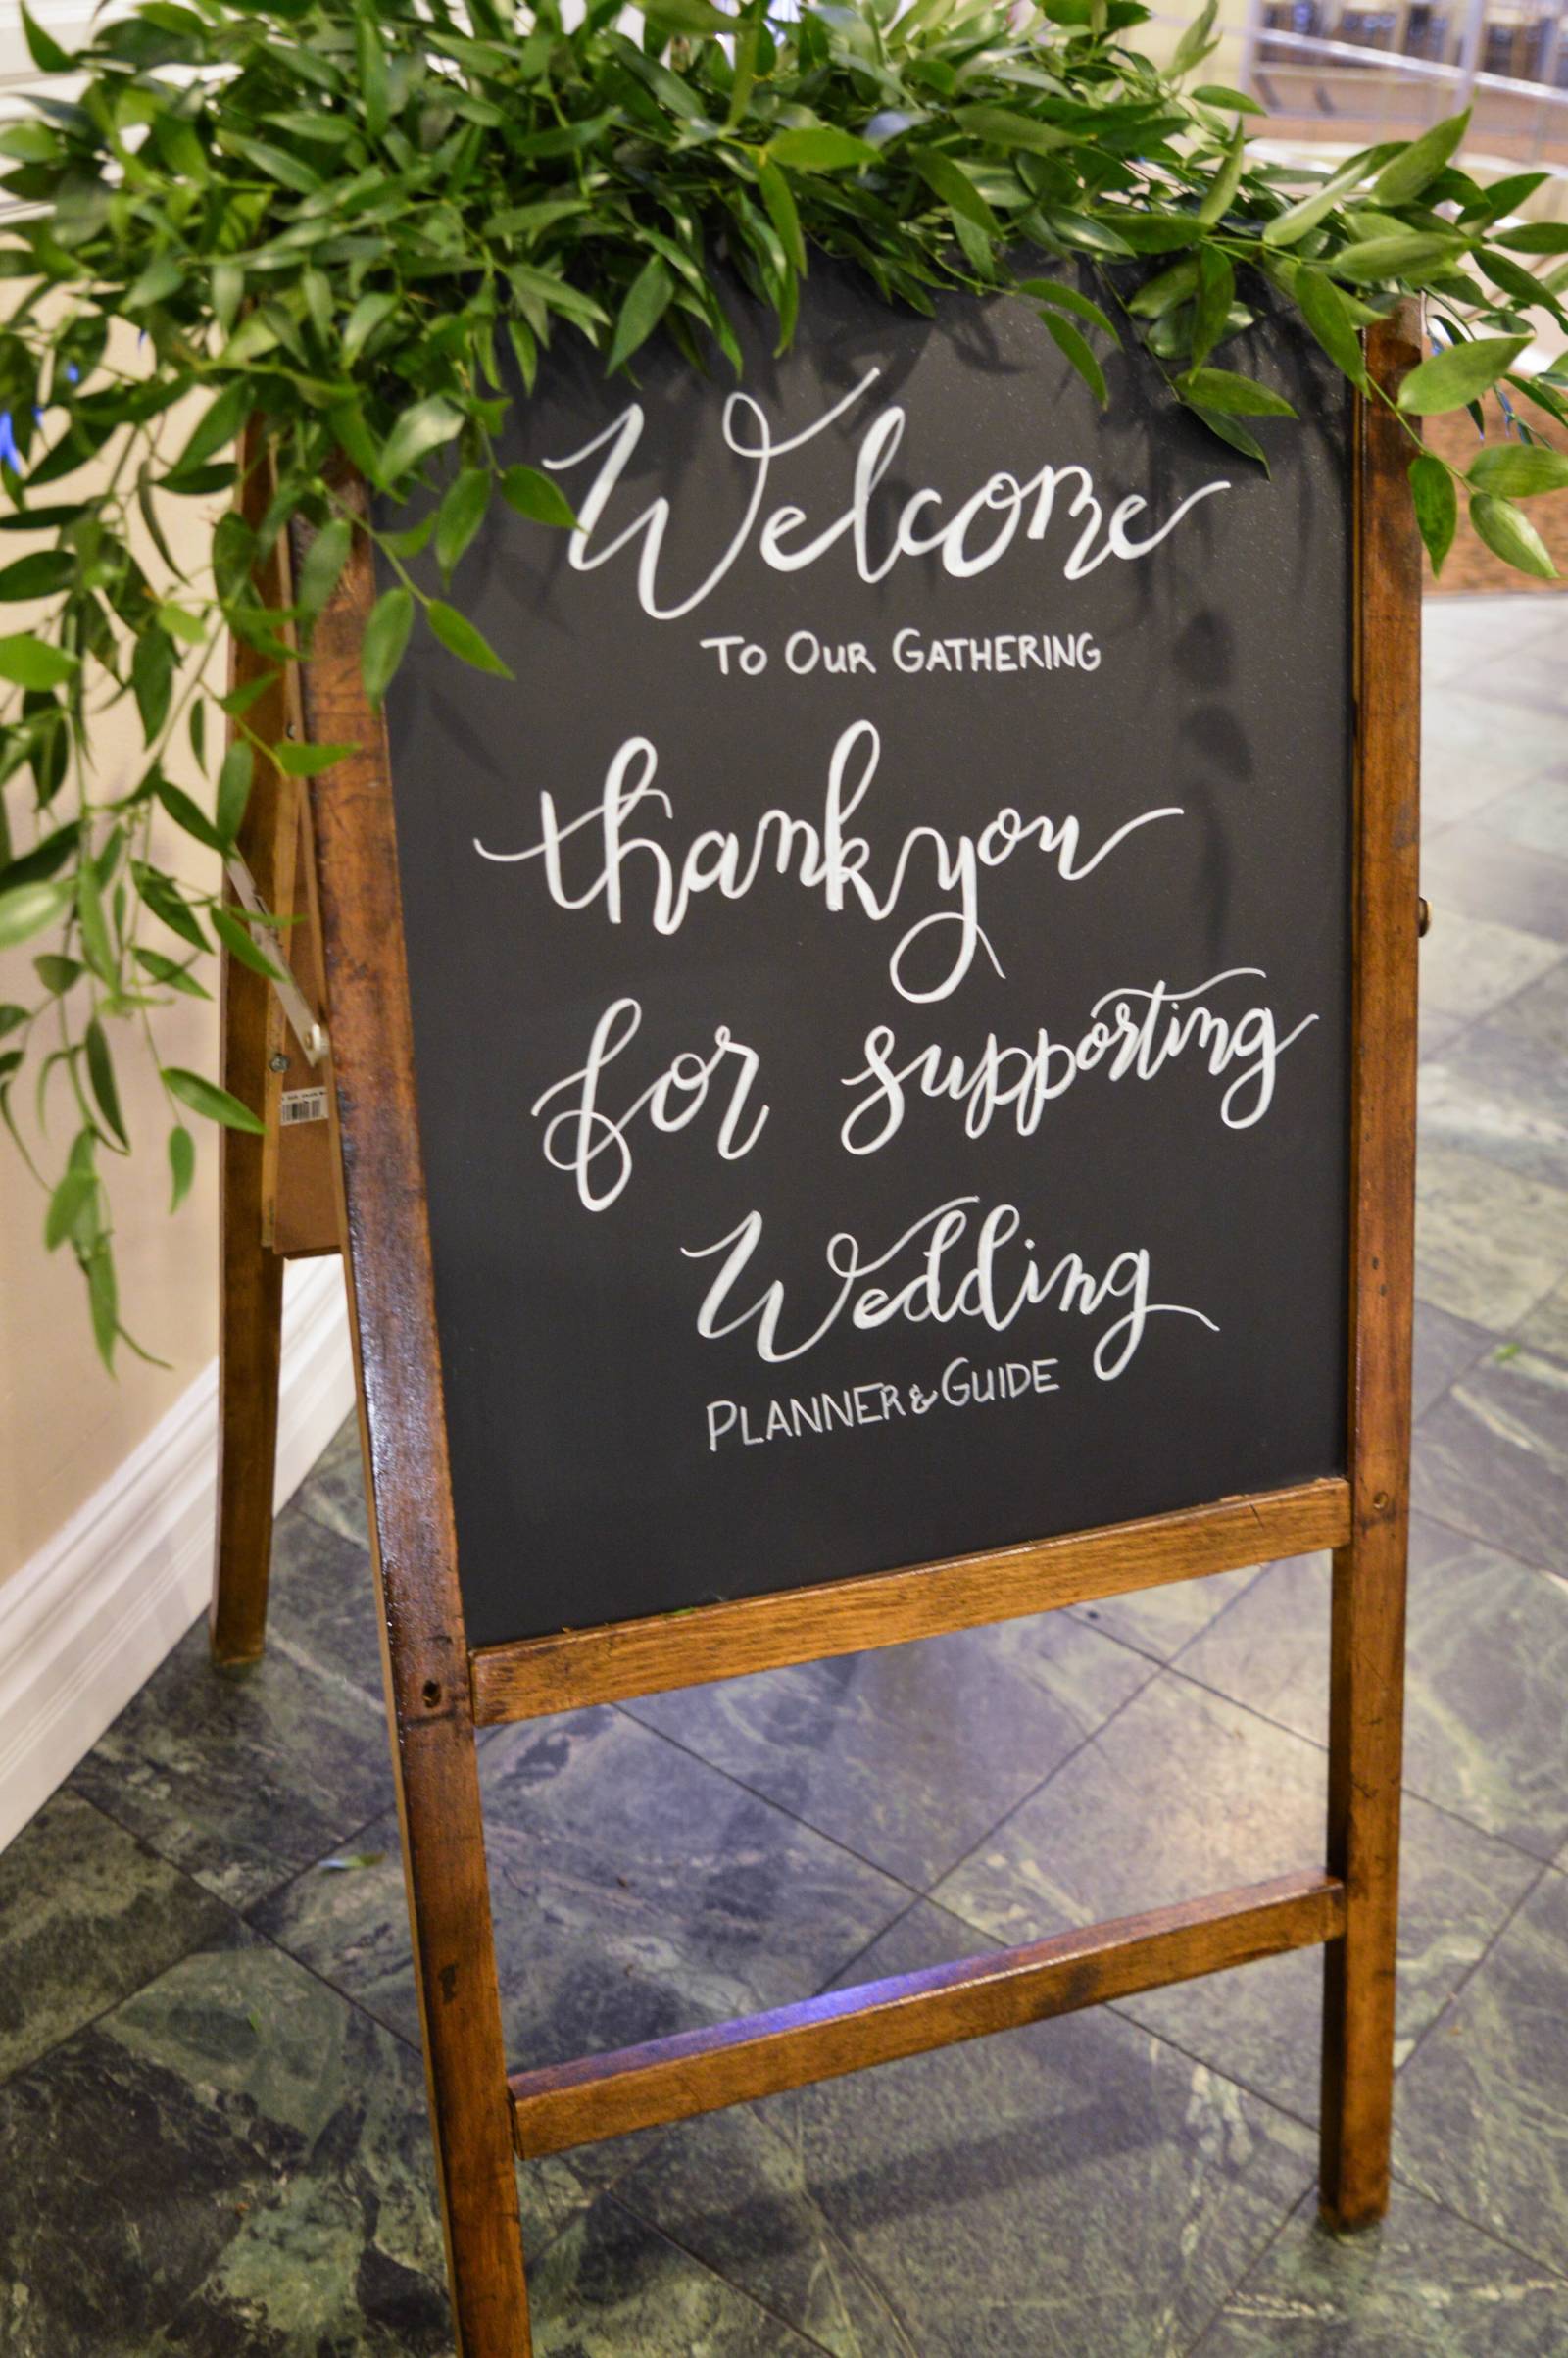 Welcome
To Our Gathering
thank you
for supporting
Wedding
Planner & Guide